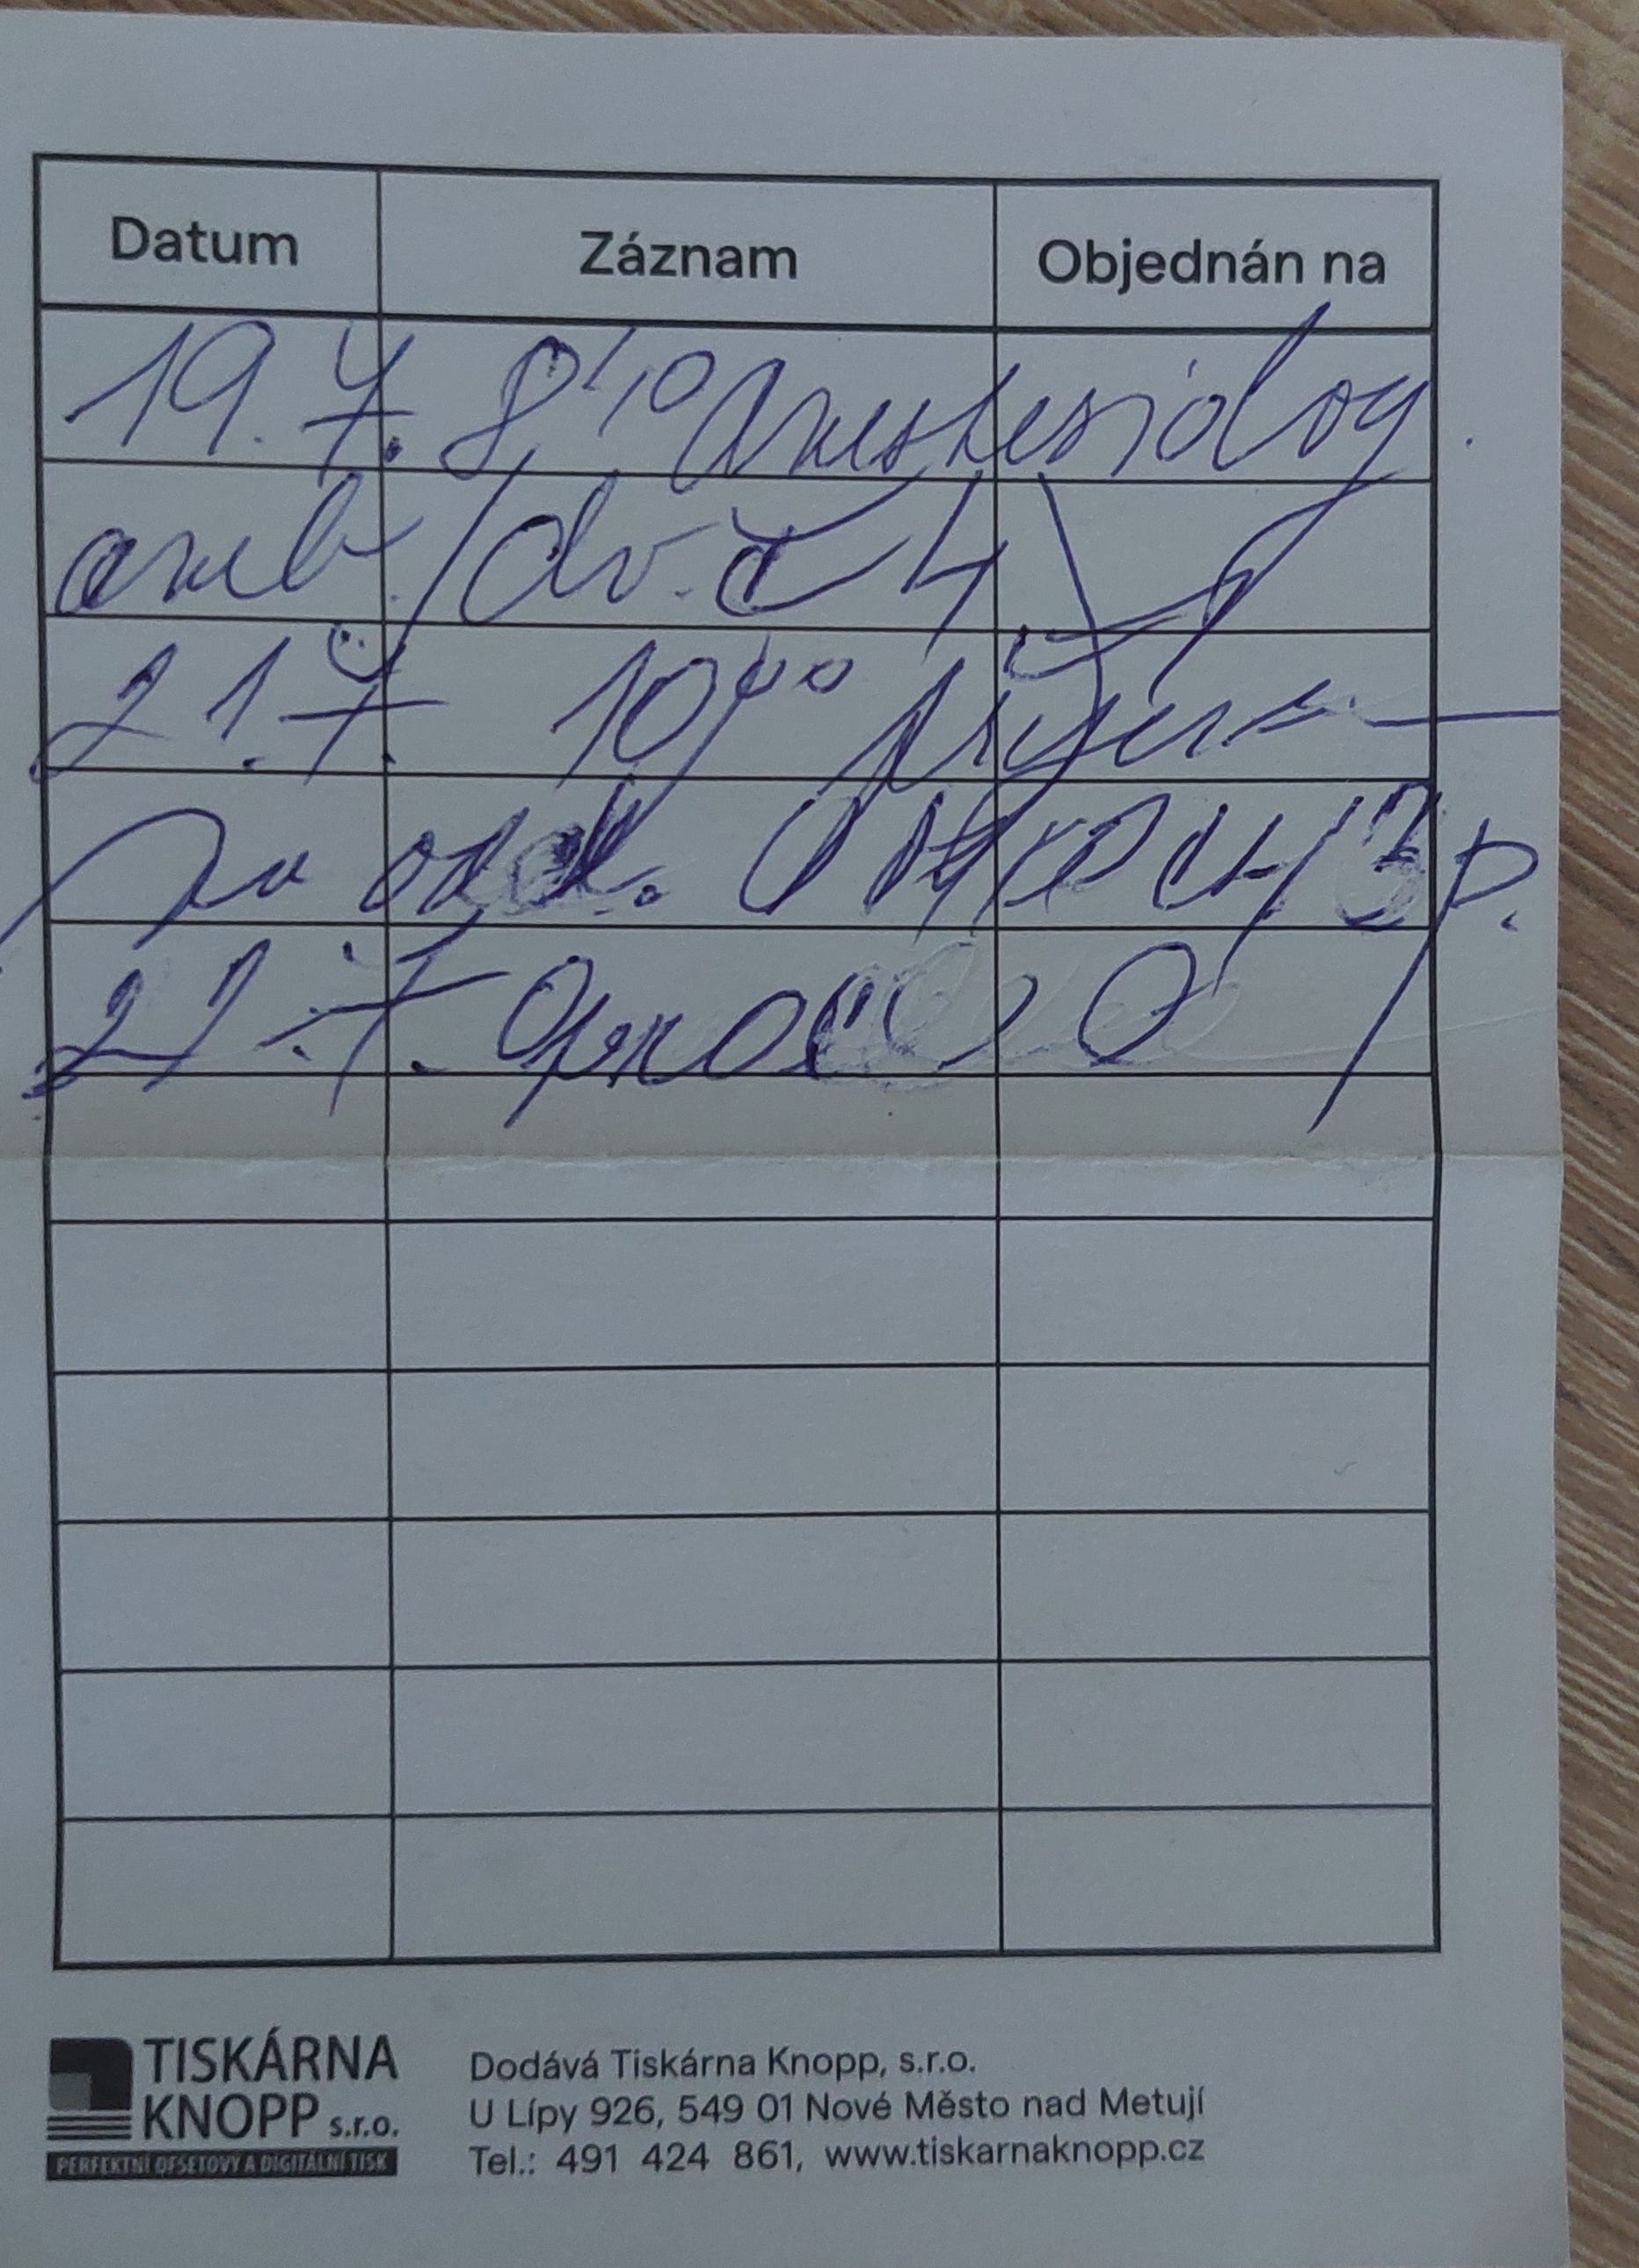 Datum Záznam Objednán na
19. 7. 8,10 Anestesiolog.
amb. / dv. č 4
21. 7. 10 00 příjem
na odd. 3 p.
22. 7. Operace
TISKÁRNA
KNOPP s.r.o.
PERFEKTNÍ OFSETOVÝ A DIGITÁLNÍ TISK
Dodává Tiskárna Knopp, s.r.o.
U Lípy 926, 549 01 Nové Město nad Metují
Tel.: 491 424 861, www.tiskarnaknopp.cz